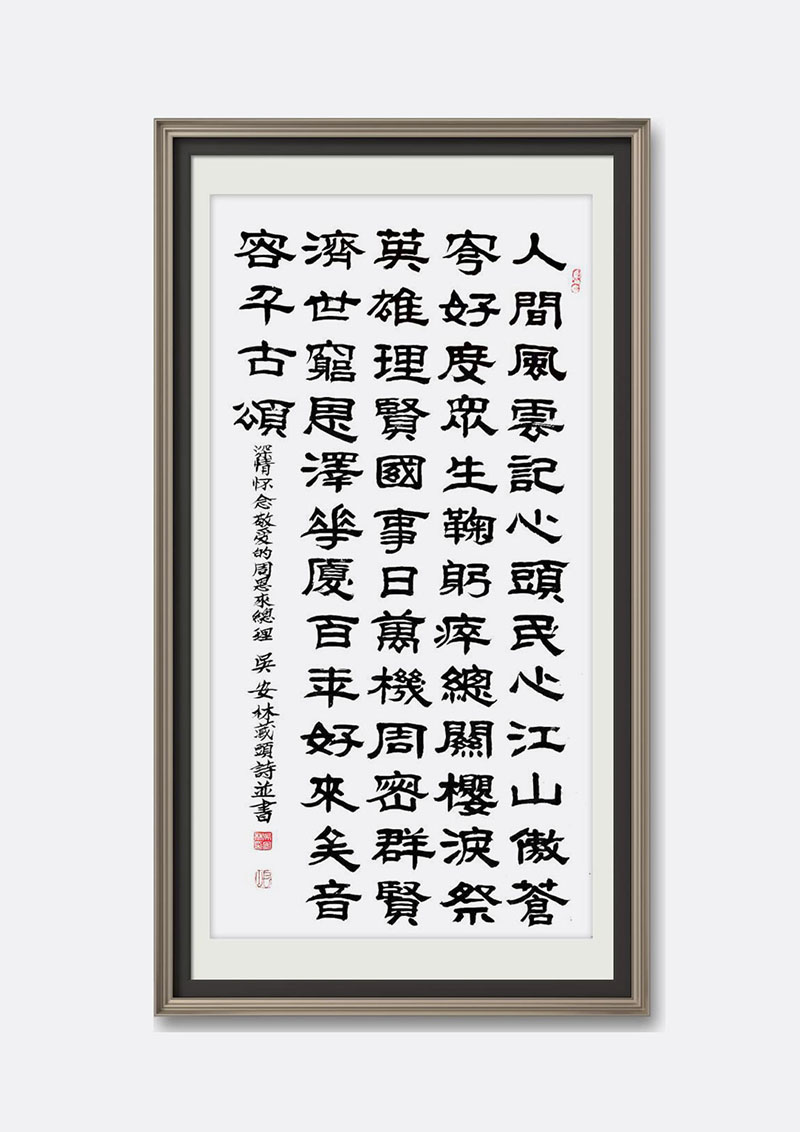 人間風雲記心頭民心江山傲蒼
穹好度眾生鞠躬瘁總關櫻淚祭
英雄理賢國事日萬機周密群賢
濟世窮恩澤華廈百年好來矣音
容千古頌
深情怀念敬愛的周恩來總理 吴安林藏頭詩並書